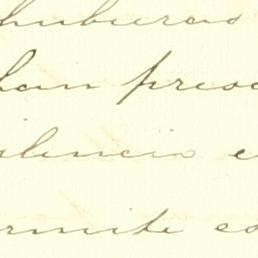 hubieras
han preoc
silencio e
ermite es